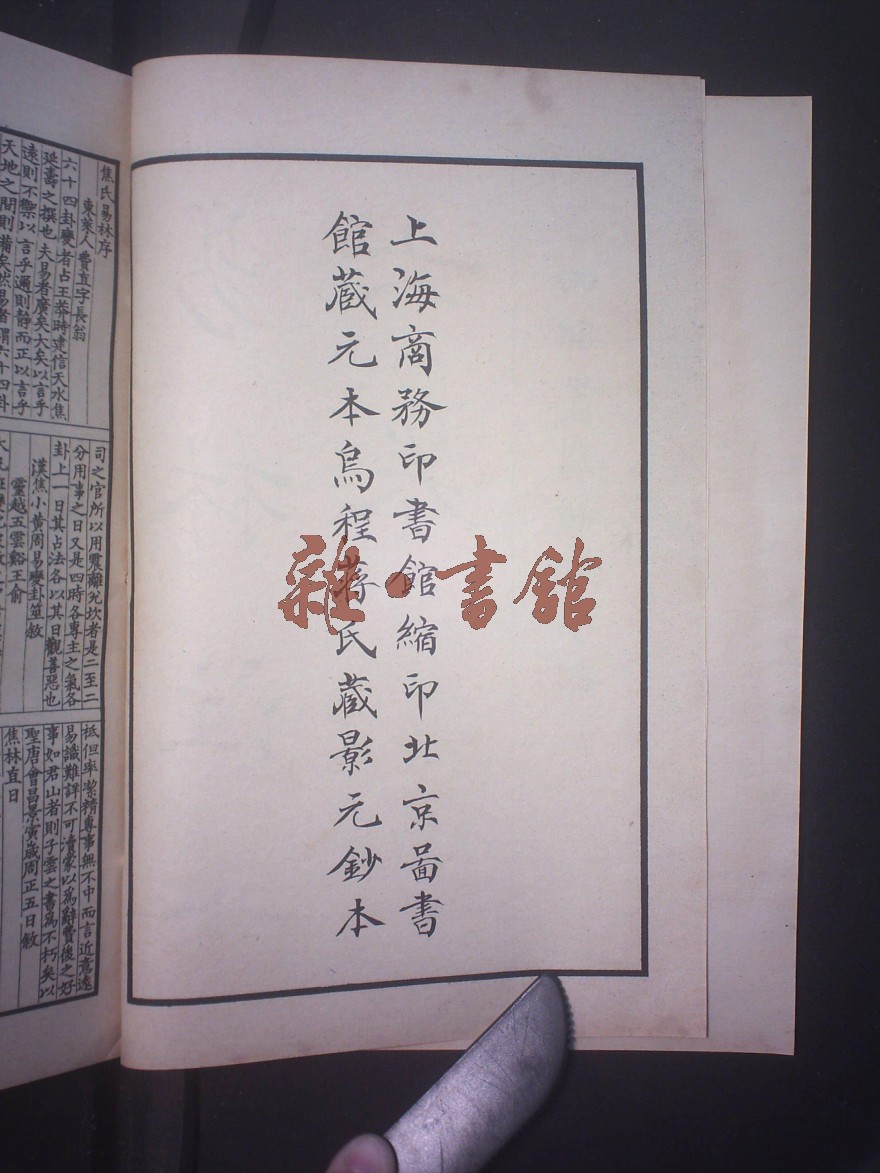 上海商務印書館縮印北京啚書
館藏元本烏程蔣氏藏影元鈔本
雜·書館
焦氏易林序
東萊人費直字長翁
六十四卦變者占王莽時建信天水焦
延壽之撰也夫易者廣矣大矣以言乎
遠則不禦以言乎邇則靜而正以言乎
天地之間則備矣然易者謂六十四卦
司之官所以用震離兊坎者是二至二
分用事之日又是四時各專主之氣各
卦上一日其占法各以其日觀善惡也
漢焦小黃周易變卦筮敘
靈越五雲谿王俞
祗但率㓗精專事無不中而言近意遠
易識難詳不可瀆蒙以為辭費後之好
事如君山者則子雲之書為不朽矣以
聖唐會昌景寅歲周正五日敘
焦林直日